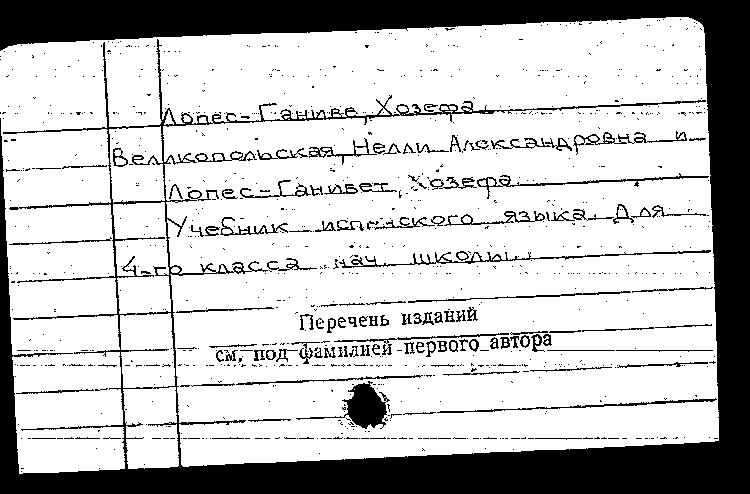 Лопес-Ганиве, Хозефа.
Великопольская, Нелли Александровна и
Лопес-Ганивет, Хозефа
Учебник испанского языка. Для
4-го класса нач. школы.
Перечень изданий
см. под фамилией первого автора